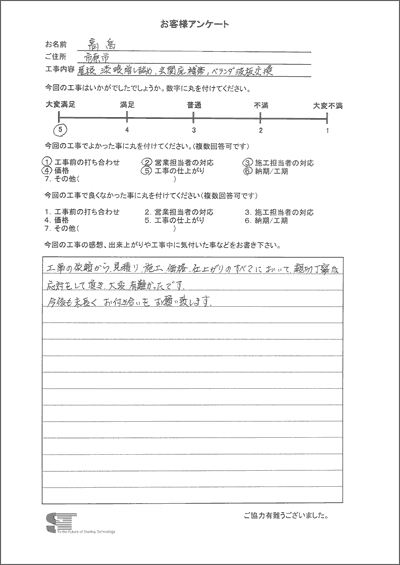 お客様アンケート
お名前 高 島
ご住所 市原市
工事内容 屋根 漆喰増し詰め,玄関庇補修,ベランダ波板交換
今回の工事はいかがでしたでしょうか。数字に丸を付けてください。
大変満足 満足 普通 不満 大変不満
5 4 3 2 1
今回の工事でよかった事に丸を付けてください。(複数回答可です)
1. 工事前の打ち合わせ 2. 営業担当者の対応 3. 施工担当者の対応
4. 価格 5. 工事の仕上がり 6. 納期/工期
7. その他( )
今回の工事で良くなかった事に丸を付けてください(複数回答可です)
1. 工事前の打ち合わせ 2. 営業担当者の対応 3. 施工担当者の対応
4. 価格 5. 工事の仕上がり 6. 納期/工期
7. その他( )
今回の工事の感想、出来上がりや工事中に気付いた事などをお書き下さい。
工事の依頼から、見積り 施工 価格 仕上がりのすべてにおいて、親切丁寧な
応対をして頂き、大変有難かったです。
今後も末長く お付き合いを お願い致します。
ST
To the Future of Sharing Technology
ご協力有難うございました。